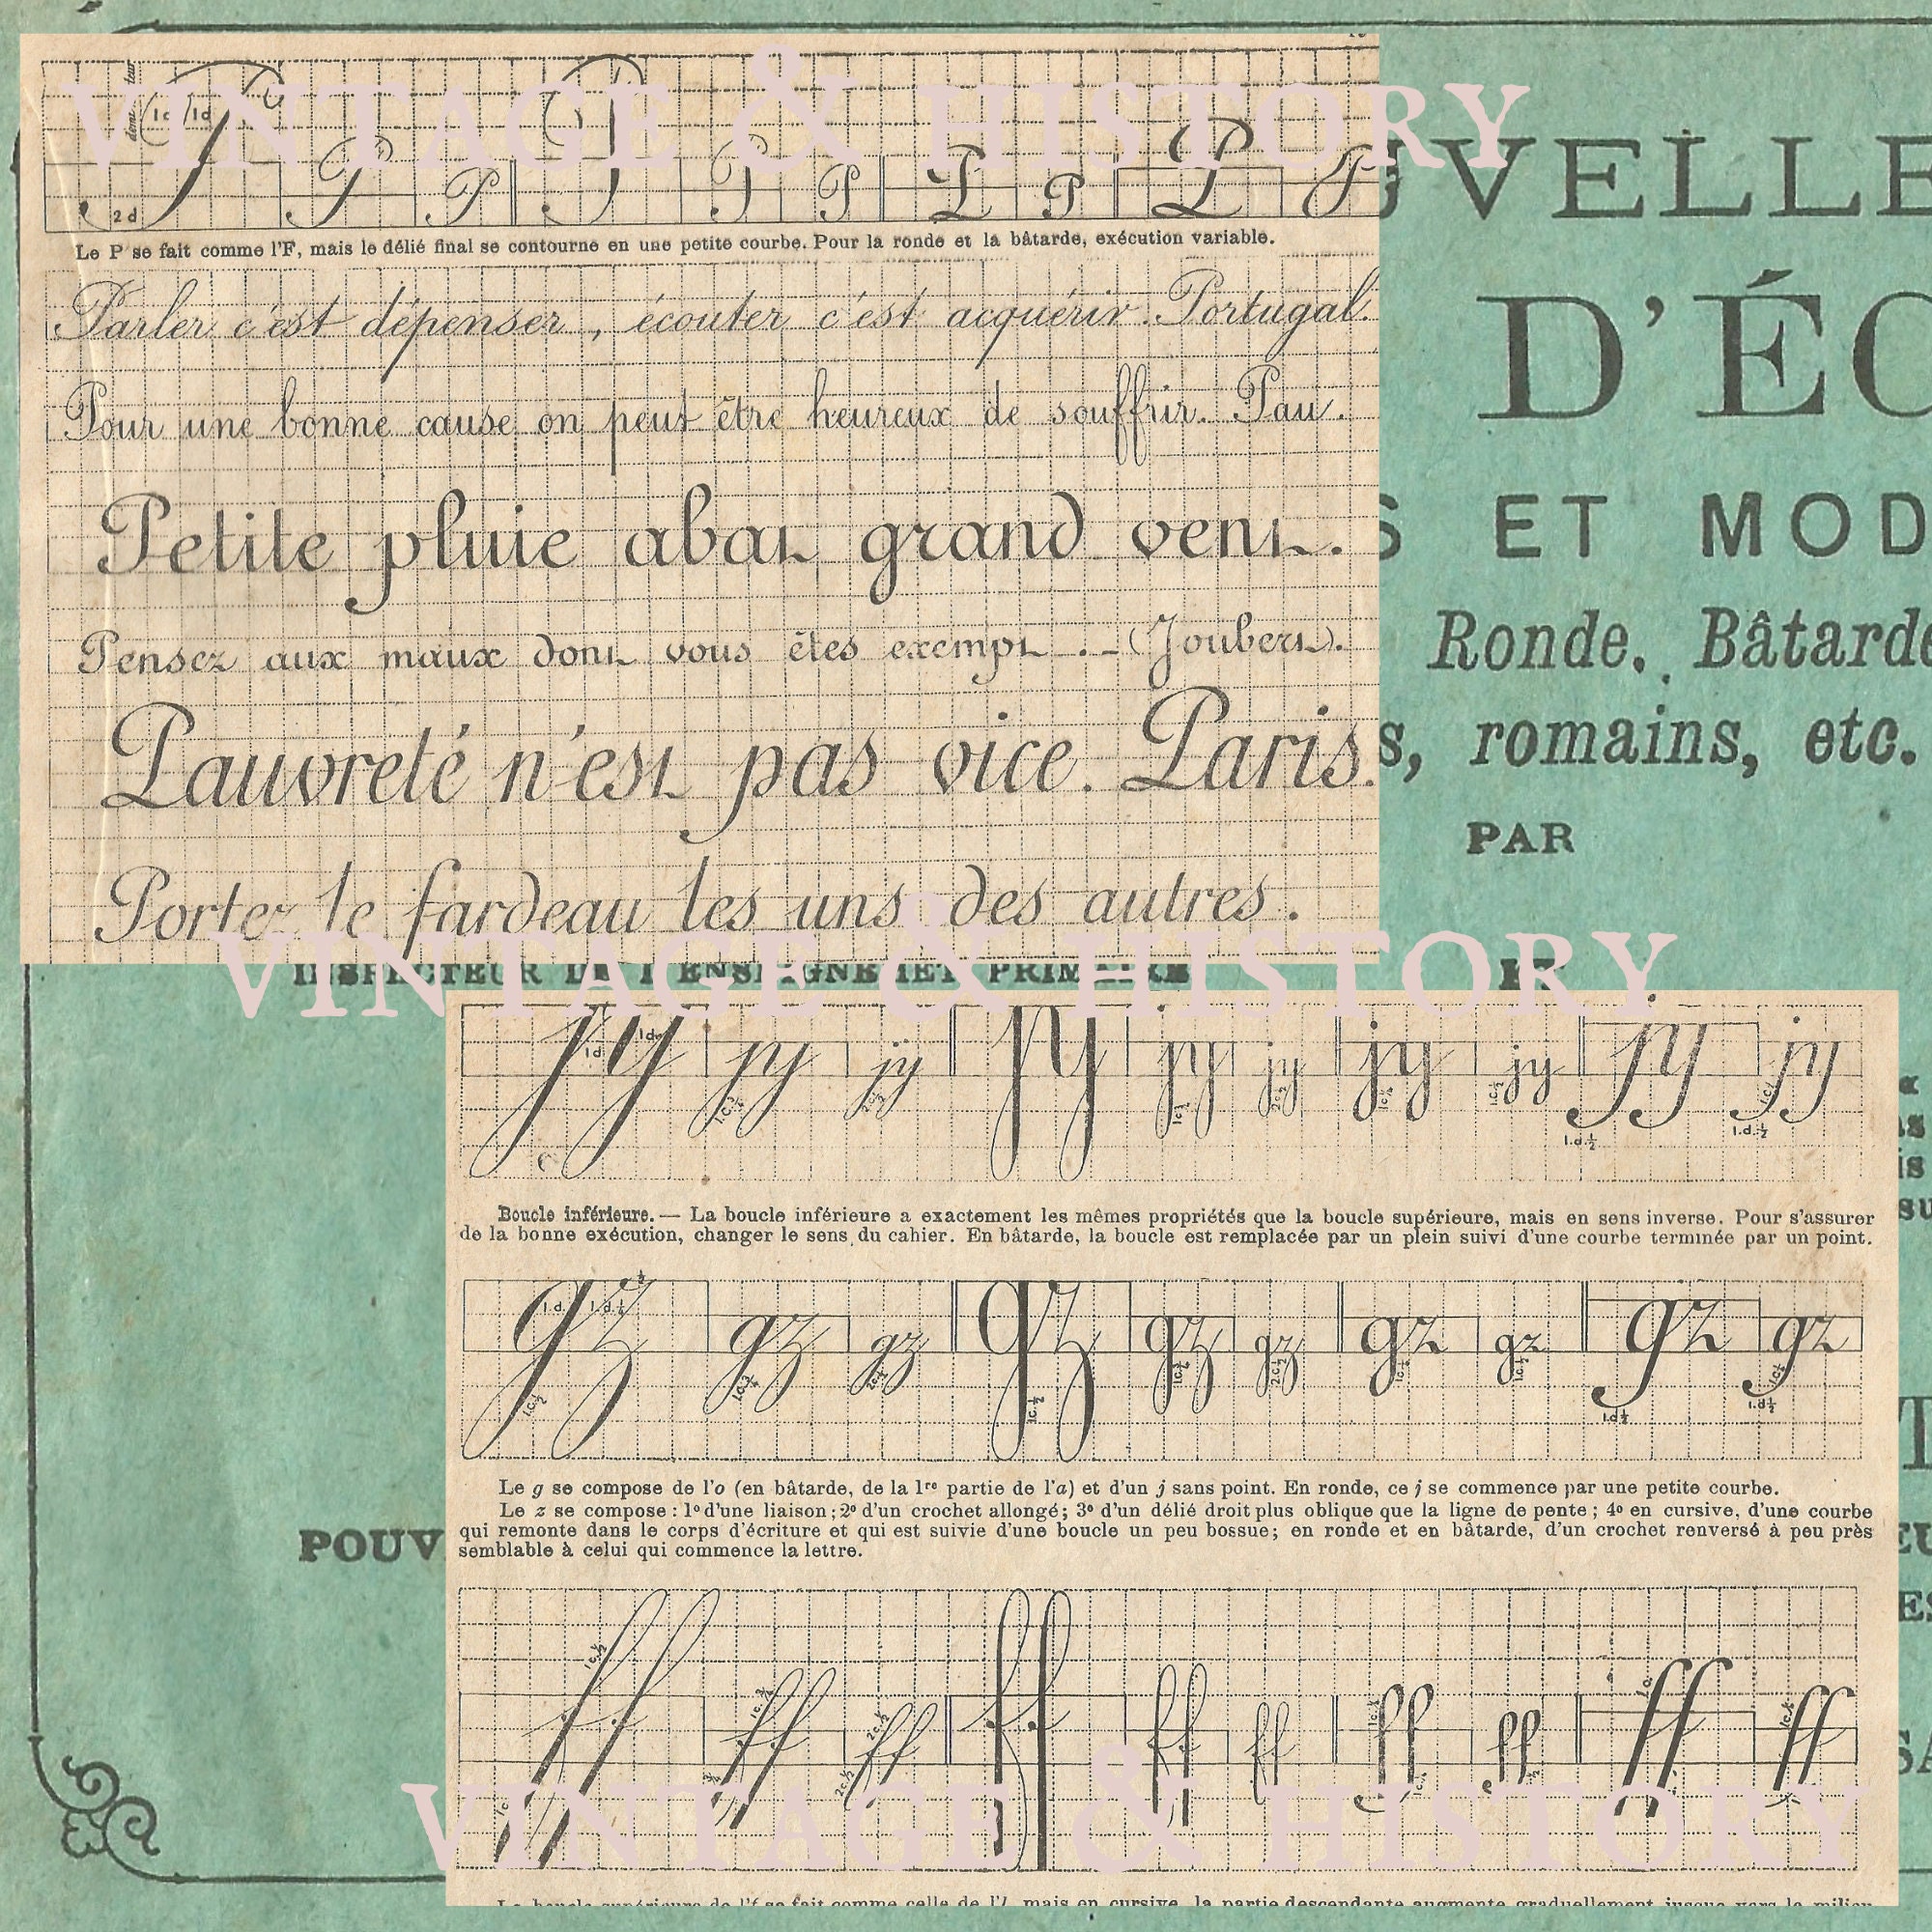 VINTAGE & HISTORY
1d 1d
2d
P P P P P P P P
Le P se fait comme l'F, mais le délié final se contourne en une petite courbe. Pour la ronde et la bâtarde, exécution variable.
Parler c'est dépenser, écouter c'est acquérir. Portugal.
Pour une bonne cause on peut être heureux de souffrir. Pau.
Petite pluie abat grand vent.
Pensez aux maux dont vous êtes exempt. – (Joubert).
Pauvreté n'est pas vice. Paris.
Portez le fardeau les uns des autres.
UVELLE
D'ÉC
S ET MOD
Ronde, Bâtarde
s, romains, etc.
PAR
VINTAGE & HISTORY
INSPECTEUR DE L'ENSEIGNEMENT PRIMAIRE
jy jy jy jy jy jy jy jy jy jy
Boucle inférieure. — La boucle inférieure a exactement les mêmes propriétés que la boucle supérieure, mais en sens inverse. Pour s'assurer
de la bonne exécution, changer le sens du cahier. En bâtarde, la boucle est remplacée par un plein suivi d'une courbe terminée par un point.
gz gz gz gz gz gz gz gz gz gz
Le g se compose de l'o (en bâtarde, de la 1re partie de l'a) et d'un j sans point. En ronde, ce j se commence par une petite courbe.
Le z se compose : 1º d'une liaison ; 2º d'un crochet allongé ; 3º d'un délié droit plus oblique que la ligne de pente ; 4º en cursive, d'une courbe
qui remonte dans le corps d'écriture et qui est suivie d'une boucle un peu bossue ; en ronde et en bâtarde, d'un crochet renversé à peu près
semblable à celui qui commence la lettre.
POUV
ff ff ff ff ff ff ff ff ff ff
VINTAGE & HISTORY
La boucle supérieure de l'f se fait comme celle de l'l, mais en cursive, la partie descendante augmente graduellement jusque vers le milieu